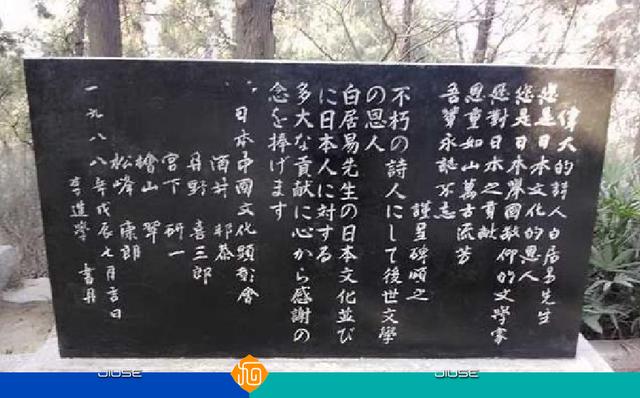 偉大的詩人白居易先生
您是日本文化的恩人
您是日本舉國敬仰的文學家
您對日本之貢獻
恩重如山萬古流芳
吾輩永誌不忘
謹呈碑頌之
不朽の詩人にして後世文學
の恩人
白居易先生の日本文化並び
に日本人に対する
多大な貢献に心から感謝の
念を捧げます
日本中国文化顕彰會
酒井 邦恭
丹野 喜三郎
宮下 研一
檜山 翠
松峰 康朗
一九八八年戊辰七月吉日
李進學 書丹
JIUSE
JIUSE